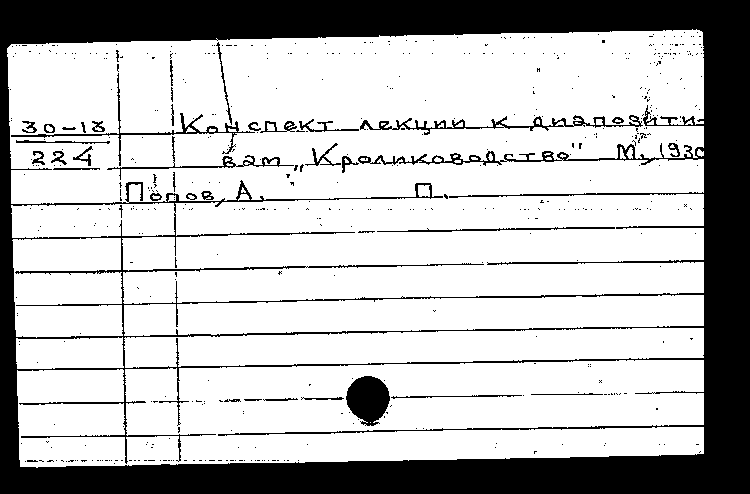 30-13 Конспект лекции к диапозити-
224 вам „Кролиководство" М., 1930
Попов, А. П.